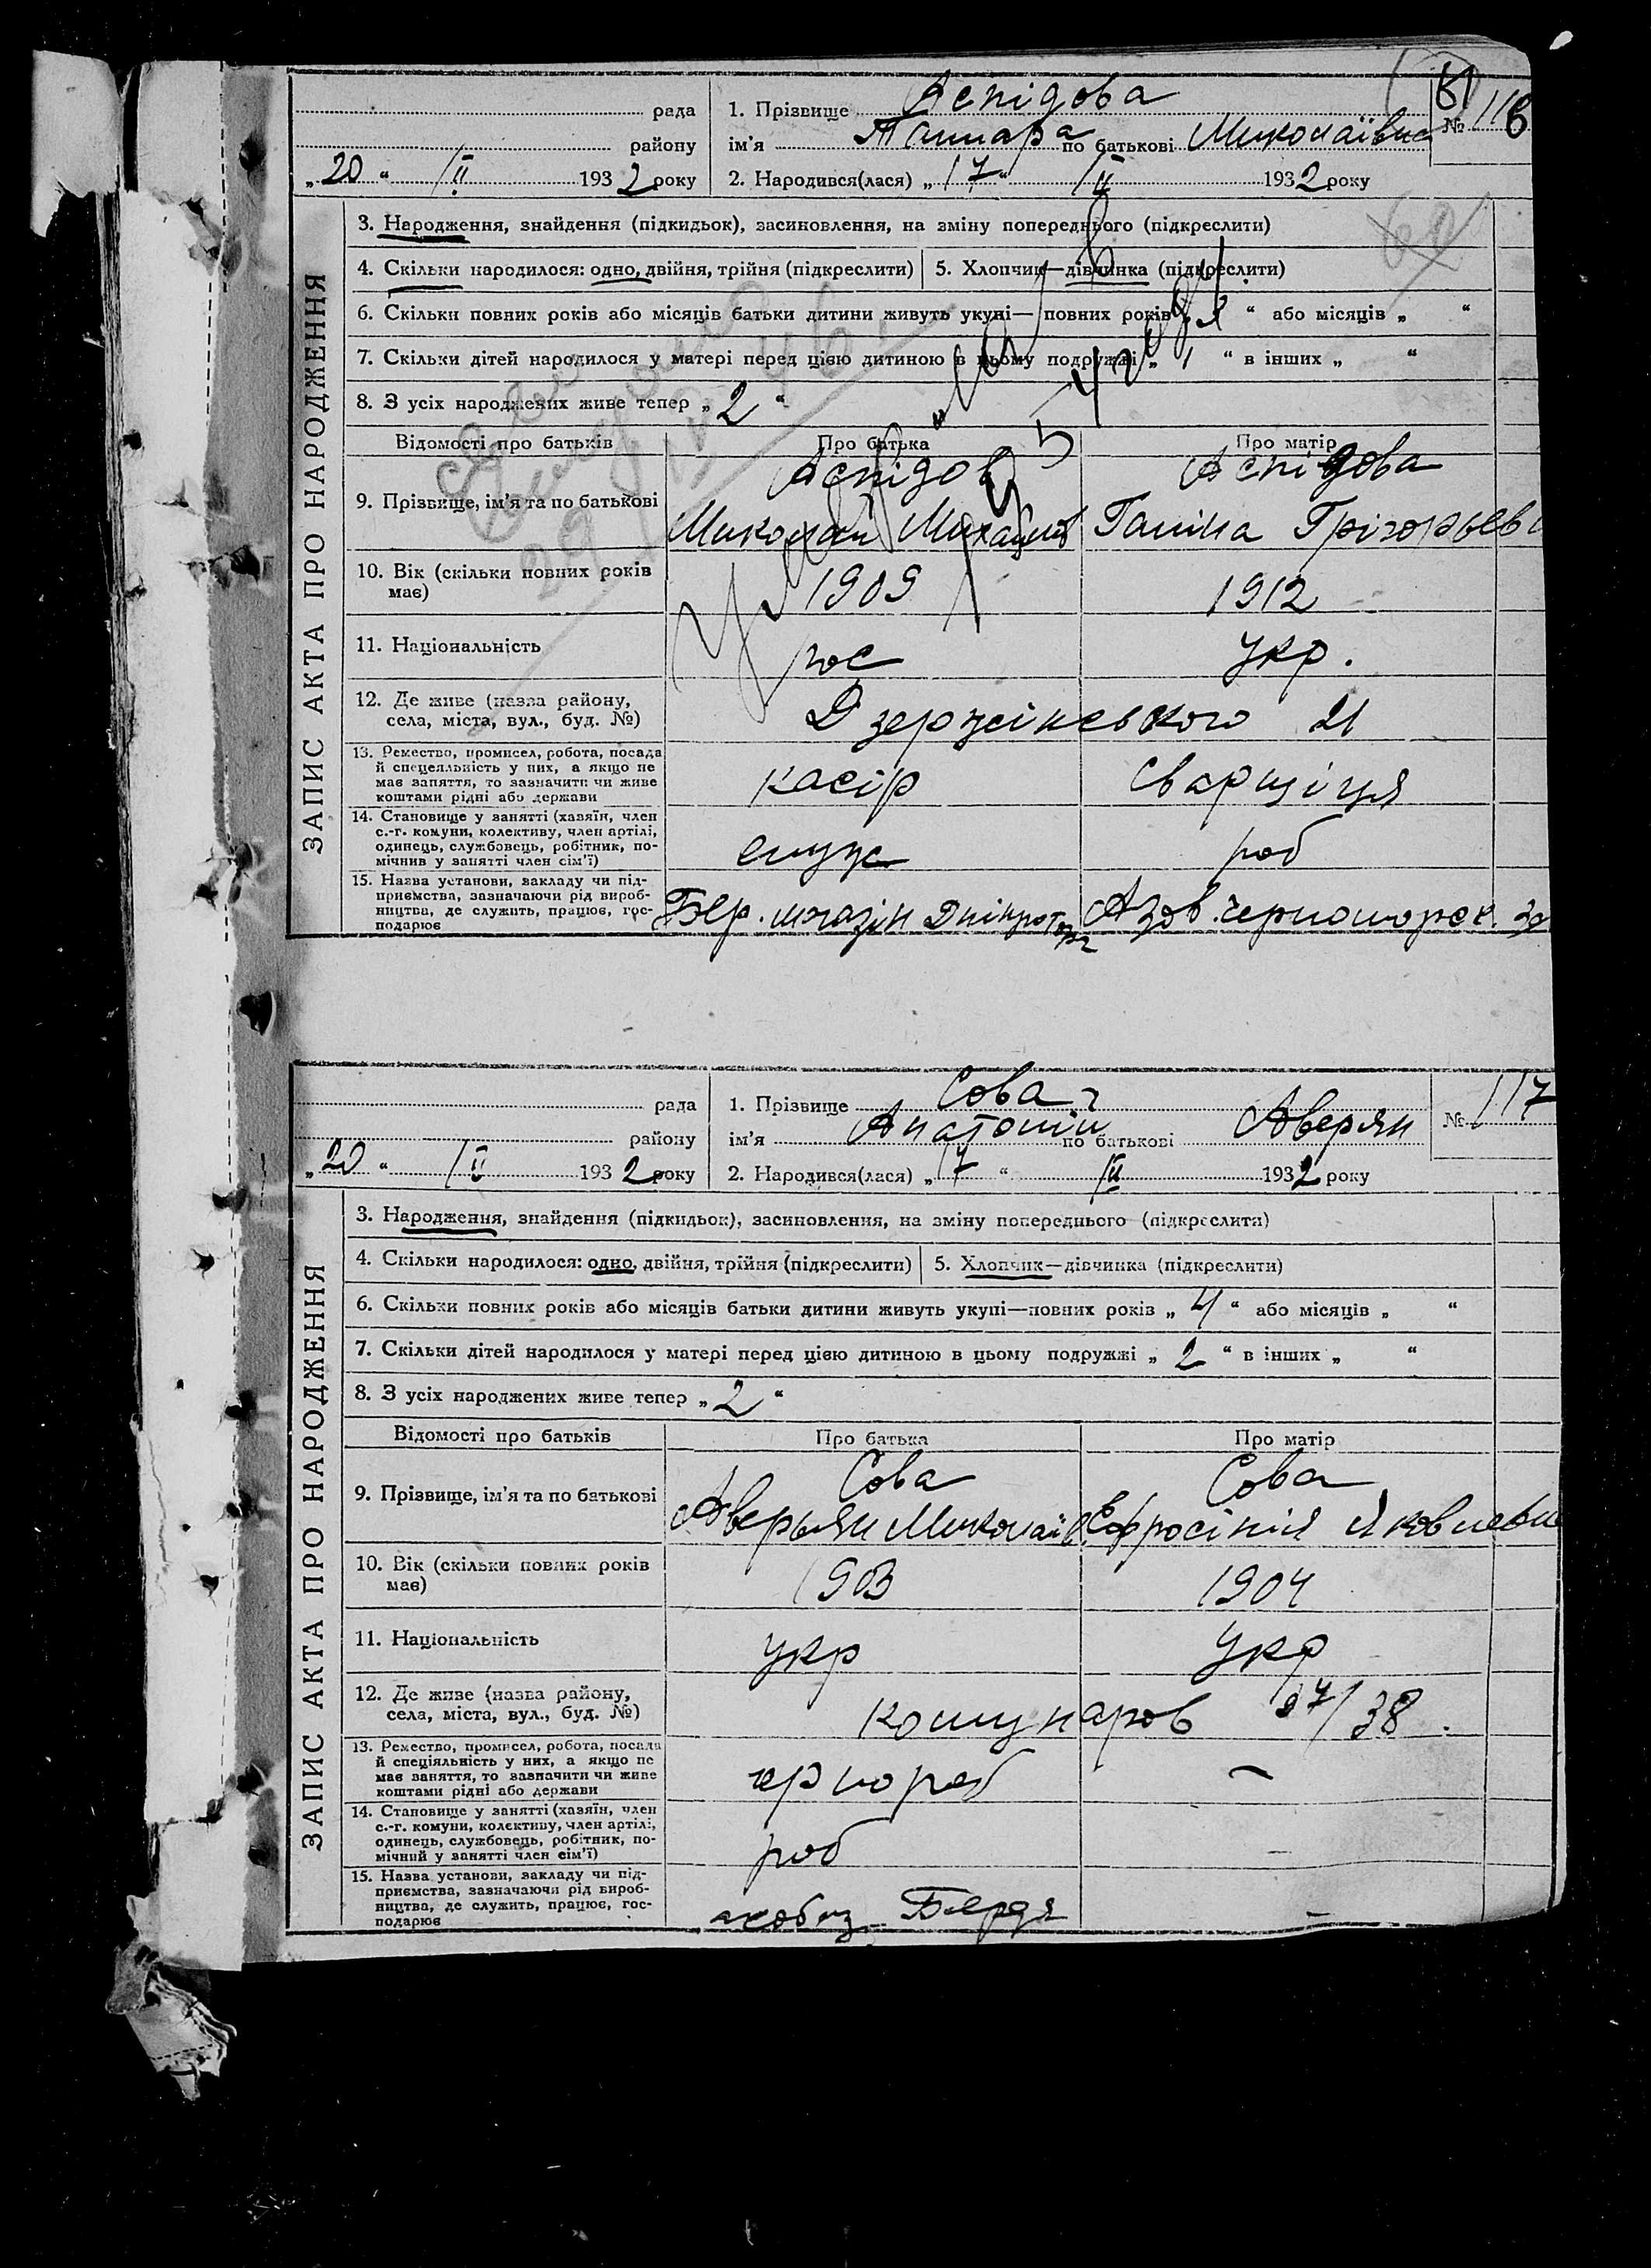 61
рада
1. Прізвище Аспідова
№ 116
району
ім'я Тамара по батькові Миколаївна
„20“ II 1932 року
2. Народився(лася) „17“ II 1932 року
ЗАПИС АКТА ПРО НАРОДЖЕННЯ
3. Народження, знайдення (підкидьок), засиновлення, на зміну попереднього (підкреслити)
4. Скільки народилося: одно, двійня, трійня (підкреслити)
5. Хлопчик—дівчинка (підкреслити)
6. Скільки повних років або місяців батьки дитини живуть укупі— повних років „ “ або місяців „ “
7. Скільки дітей народилося у матері перед цією дитиною в цьому подружжі „ 1 “ в інших „ “
8. З усіх народжених живе тепер „ 2 “
Відомості про батьків
Про батька
Про матір
9. Прізвище, ім'я та по батькові
Аспідов
Миколай Михайлов
Аспідова
Галина Грігорьевн
10. Вік (скільки повних років
має)
1909
1912
11. Національність
рос
укр.
12. Де живе (назва району,
села, міста, вул., буд. №)
Дзержінського 21
13. Ремество, промисел, робота, посада
й спецеяльність у них, а якщо не
має заняття, то зазначити чи живе
коштами рідні або держави
касір
сварщіця
14. Становище у занятті (хазяїн, член
с.-г. комуни, колективу, член артілі,
одинець, службовець, робітник, по-
мічник у занятті член сім'ї)
служ
роб
15. Назва установи, закладу чи під-
приємства, зазначаючи рід вироб-
ництва, де служить, працює, гос-
подарює
Бер. магазін Дніпроторг
Азов. черноморск. за
рада
1. Прізвище Сова
№ 117
району
ім'я Анатолій по батькові Аверян
„20“ II 1932 року
2. Народився(лася) „ “ II 1932 року
ЗАПИС АКТА ПРО НАРОДЖЕННЯ
3. Народження, знайдення (підкидьок), засиновлення, на зміну попереднього (підкреслити)
4. Скільки народилося: одно, двійня, трійня (підкреслити)
5. Хлопчик—дівчинка (підкреслити)
6. Скільки повних років або місяців батьки дитини живуть укупі—повних років „ 4 “ або місяців „ “
7. Скільки дітей народилося у матері перед цією дитиною в цьому подружжі „ 2 “ в інших „ “
8. З усіх народжених живе тепер „ 2 “
Відомості про батьків
Про батька
Про матір
9. Прізвище, ім'я та по батькові
Сова
Аверьян Миколаїв.
Сова
Ефросінія Яковлевн
10. Вік (скільки повних років
має)
1903
1904
11. Національність
укр
укр
12. Де живе (назва району,
села, міста, вул., буд. №)
Комунаров 37/38.
13. Ремество, промисел, робота, посада
й спеціяльність у них, а якщо не
має заняття, то зазначити чи живе
коштами рідні або держави
чернороб
–
14. Становище у занятті (хазяїн, член
с.-г. комуни, колективу, член артілі,
одинець, службовець, робітник, по-
мічний у занятті член сім'ї)
роб
–
15. Назва установи, закладу чи під-
приємства, зазначаючи рід вироб-
ництва, де служить, працює, гос-
подарює
Бердя
–